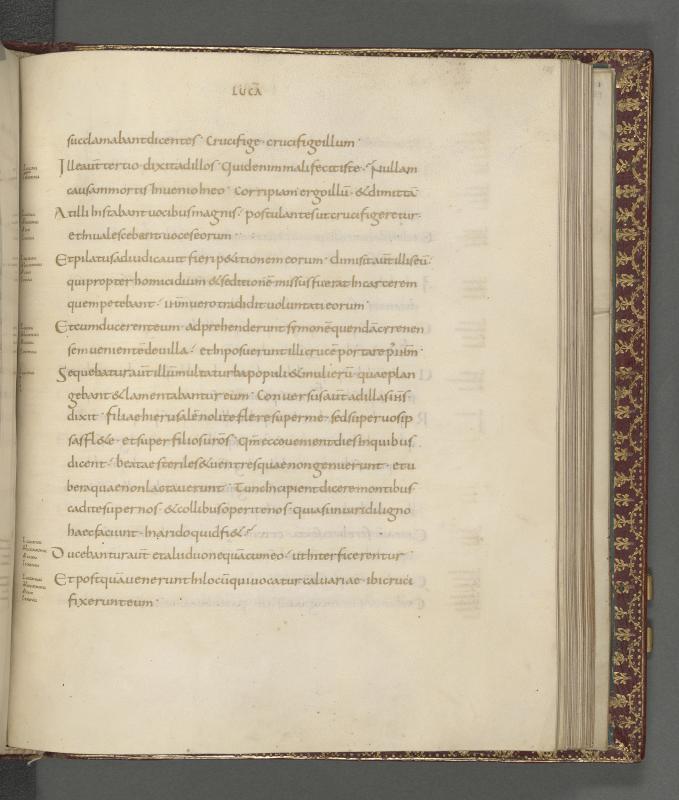 LUCA̅
succlamabant dicentes · Crucifige · crucifige illum ·
Ille aut̅ tertio dixit ad illos · Quid enim mali fecit iste · Nullam
causam mortis Inuenio In eo · Corripiam ergo illu̅ · & dimitta̅
At illi Instabant uocibus magnis · postulantes ut crucifigeretur ·
et Inualescebant uoces eorum ·
Et pilatus adiudicauit fieri p&itionem eorum · dimisit aut̅ illis eu̅ ·
qui propter homicidium & seditione̅ missus fuerat In carcerem
quem petebant · ih̅m uero tradidit uoluntati eorum ·
Et cum ducerent eum · adprehenderunt symone̅ quenda̅ cyrenen
sem ueniente̅ de uilla · et Inposuerunt illi cruce̅ portare p̅ ih̅m ·
Sequebatur aut̅ illum multa turba populi & mulieru̅ · quae plan
gebant & lamentabantur eum · Conuersus aut̅ ad illas ih̅s
dixit · filiae hierusale̅ nolite flere super me · sed super uos ip
sas fl&e · et super filios ur̅os · Qm̅ ecce uenient dies In quibus
dicent · beatae steriles & uentres quae non genuerunt · et u
bera quae non lactauerunt · Tunc Incipient dicere montibus ·
cadite super nos · & collibus operite nos · quia si In uiridi ligno
haec faciunt · In arido quid fi&·
Ducebantur aut̅ et alii duo nequa̅ cum eo · ut Interficerentur
Et postqua̅ uenerunt In locu̅ qui uocatur caluariae · ibi cruci
fixerunt eum ·